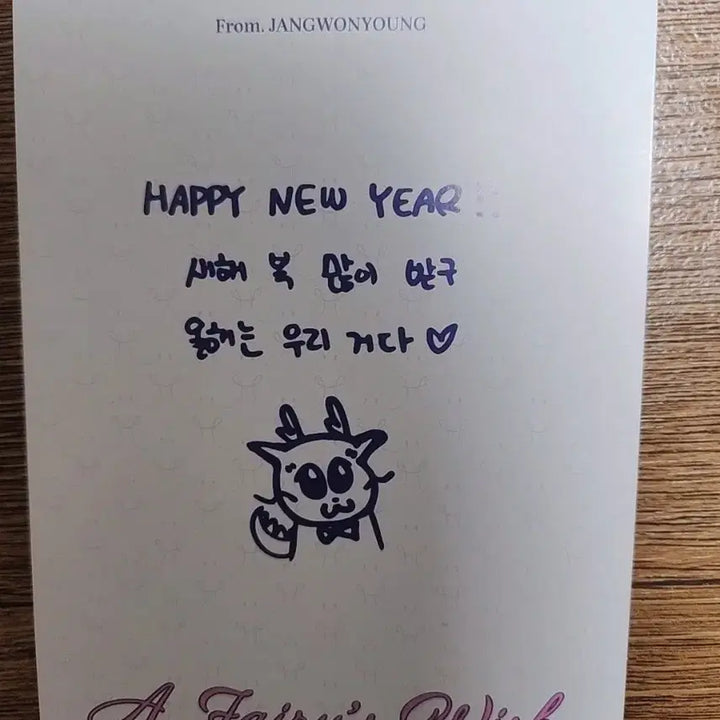 From. JANGWONYOUNG
HAPPY NEW YEAR !!
새해 복 많이 받구
올해는 우리 거다 ♡
A Fairy's Wish